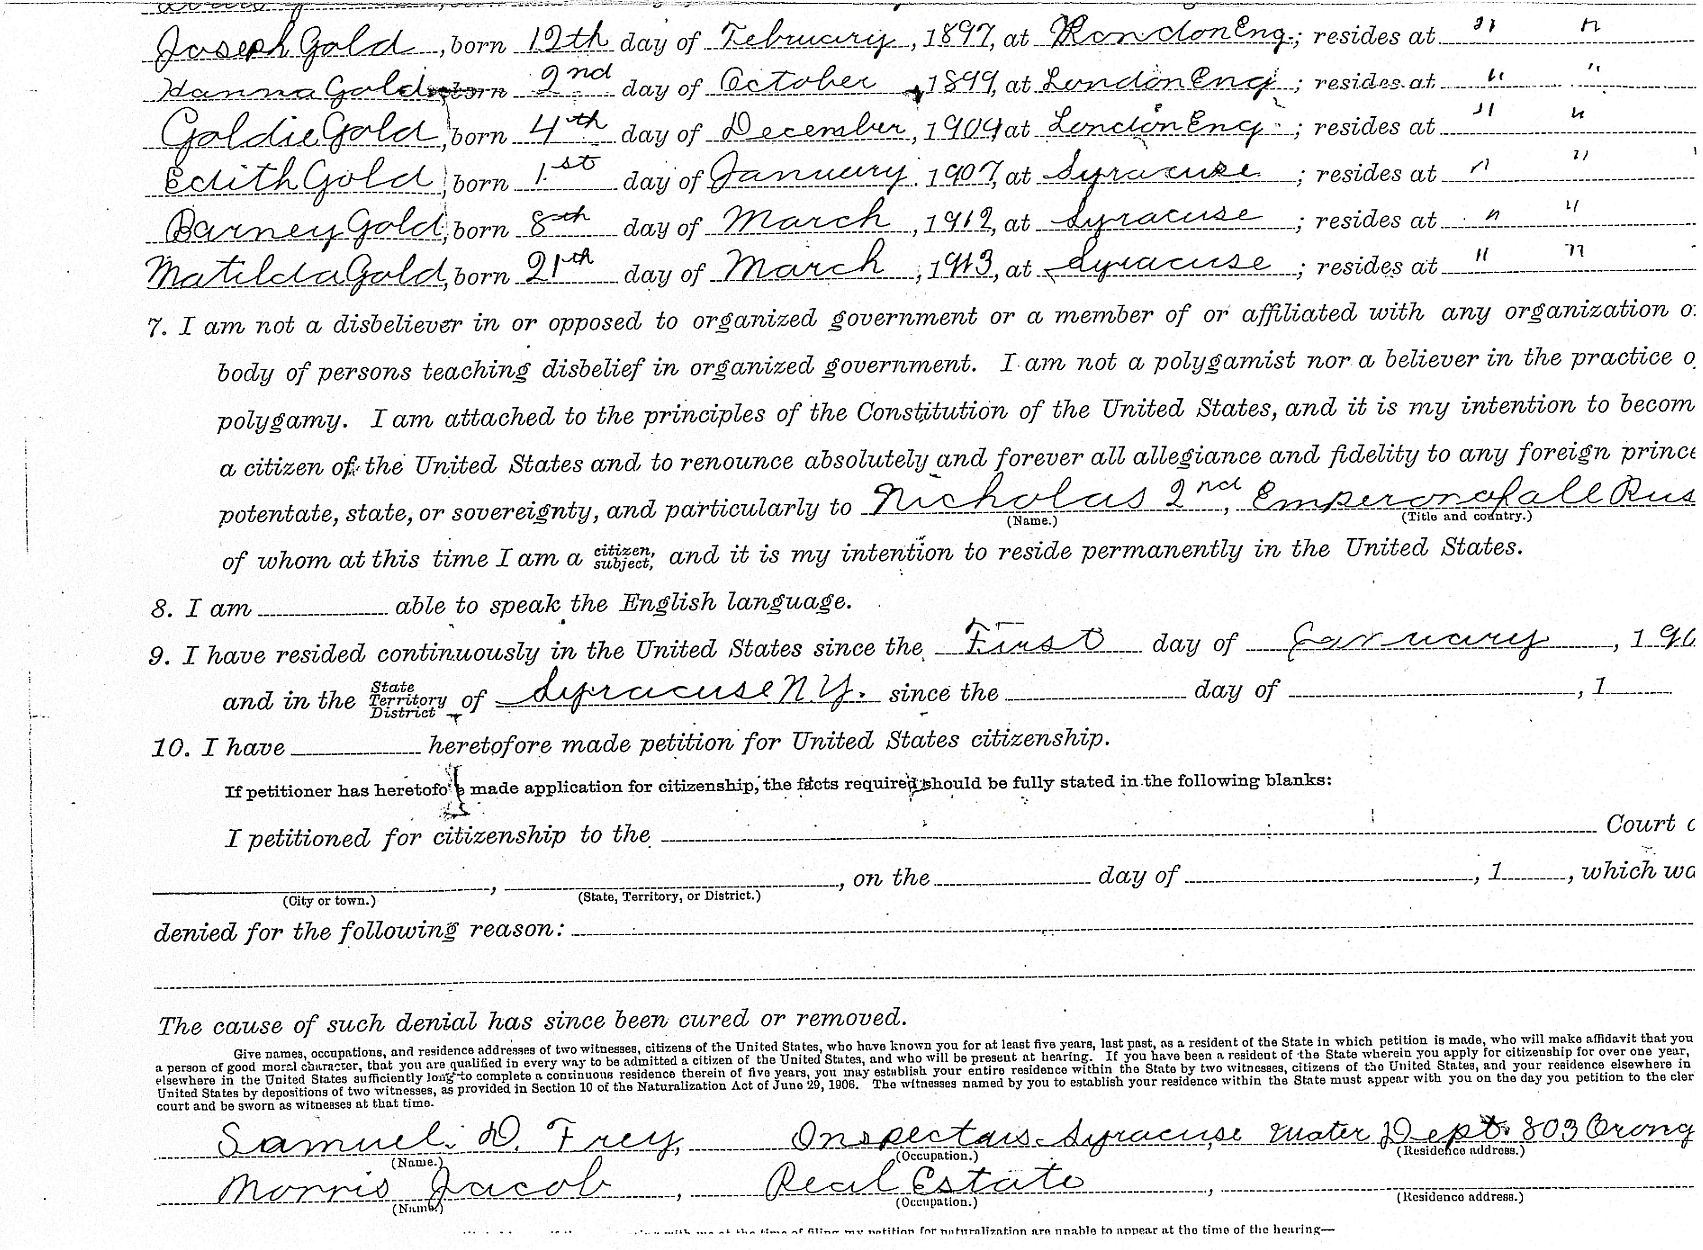 Joseph Gold, born 12th day of February, 1897, at London Eng.; resides at " "
Hanna Gold born 2nd day of October, 1899, at London Eng; resides at " "
Goldie Gold, born 4th day of December, 1904 at London Eng; resides at " "
Edith Gold, born 1st day of January, 1907, at Syracuse; resides at " "
Barney Gold, born 8th day of March, 1912, at Syracuse; resides at " "
Matilda Gold, born 21th day of March, 1913, at Syracuse; resides at " "
7. I am not a disbeliever in or opposed to organized government or a member of or affiliated with any organization o
body of persons teaching disbelief in organized government. I am not a polygamist nor a believer in the practice o
polygamy. I am attached to the principles of the Constitution of the United States, and it is my intention to becom
a citizen of the United States and to renounce absolutely and forever all allegiance and fidelity to any foreign prince
potentate, state, or sovereignty, and particularly to Nicholas 2nd, Emperor of all Rus
(Name.) (Title and country.)
of whom at this time I am a citizen, subject, and it is my intention to reside permanently in the United States.
8. I am able to speak the English language.
9. I have resided continuously in the United States since the First day of January, 190
and in the State Territory District of Syracuse N.Y. since the day of , 1
10. I have heretofore made petition for United States citizenship.
If petitioner has heretofore made application for citizenship, the facts required should be fully stated in the following blanks:
I petitioned for citizenship to the Court o
, , on the day of , 1 , which wa
(City or town.) (State, Territory, or District.)
denied for the following reason:
The cause of such denial has since been cured or removed.
Give names, occupations, and residence addresses of two witnesses, citizens of the United States, who have known you for at least five years, last past, as a resident of the State in which petition is made, who will make affidavit that you
a person of good moral character, that you are qualified in every way to be admitted a citizen of the United States, and who will be present at hearing. If you have been a resident of the State wherein you apply for citizenship for over one year,
elsewhere in the United States sufficiently long to complete a continuous residence therein of five years, you may establish your entire residence within the State by two witnesses, citizens of the United States, and your residence elsewhere in
United States by depositions of two witnesses, as provided in Section 10 of the Naturalization Act of June 29, 1906. The witnesses named by you to establish your residence within the State must appear with you on the day you petition to the cler
court and be sworn as witnesses at that time.
Samuel D. Frey, Inspector Syracuse Water Dept. 803 Orang
(Name.) (Occupation.) (Residence address.)
Morris Jacob, Real Estate,
(Name.) (Occupation.) (Residence address.)
with me at the time of filing my petition for naturalization are unable to appear at the time of the hearing—